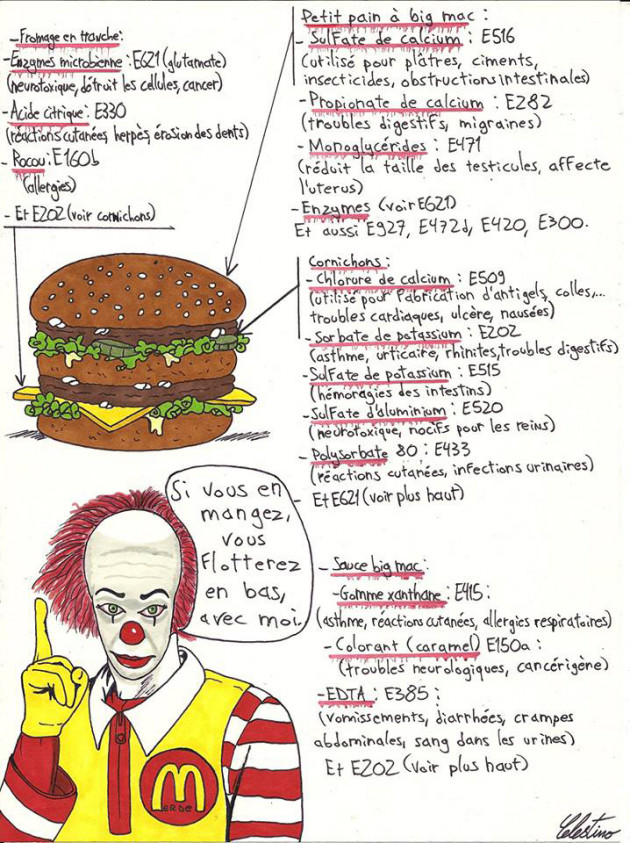 - Fromage en tranche:
- Enzymes microbienne : E621 (glutamate)
(neurotoxique, détruit les cellules, cancer)
- Acide citrique : E330
(réactions cutanées, herpès, érosion des dents)
- Rocou : E160b
(allergies)
- Et E202 (voir cornichons)
Petit pain à big mac :
- Sulfate de calcium : E516
(utilisé pour plâtres, ciments,
insecticides, obstructions intestinales)
- Propionate de calcium : E282
(troubles digestifs, migraines)
- Monoglycérides : E471
(réduit la taille des testicules, affecte
l'uterus)
- Enzymes (voir E621)
Et aussi E927, E472d, E420, E300.
Cornichons :
- Chlorure de calcium : E509
(utilisé pour fabrication d'antigels, colles,...
troubles cardiaques, ulcère, nausées)
- Sorbate de potassium : E202
(asthme, urticaire, rhinites, troubles digestifs)
- Sulfate de potassium : E515
(hémoragies des intestins)
- Sulfate d'aluminium : E520
(neurotoxique, nocifs pour les reins)
- Polysorbate 80 : E433
(réactions cutanées, infections urinaires)
- Et E621 (voir plus haut)
Si vous en
mangez,
vous
Flotterez
en bas,
avec moi.
- Sauce big mac :
- Gomme xanthane : E415 :
(asthme, réactions cutanées, allergies respiratoires)
- Colorant (caramel) E150a :
(troubles neurologiques, cancérigène)
- EDTA : E385 :
(vomissements, diarrhées, crampes
abdominales, sang dans les urines)
Et E202 (voir plus haut)
M
ERDE
Celestino